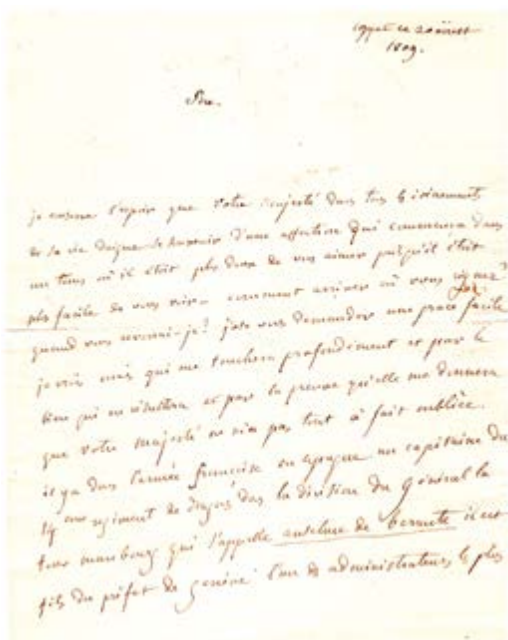 coppet ce 20 aoust
1809.
Sire.
je conserve l'espoir que Votre Majesté dans tous les évènements
de sa vie daigne se souvenir d'une affection qui commença dans
un tems où il étoit plus doux de vous aimer puisqu'il étoit
plus facile de vous voir — comment arriver où vous régnez?
quand vous verrai-je? j'ose vous demander une grace facile
je crois mais qui me touchera profondément et par le
bien qui en résultera et par la preuve qu'elle me donnera
que votre majesté ne m'a pas tout à fait oubliée.
il y a dans l'armée françoise en espagne un capitaine du
régiment de dragons dans la division du Général la
tour maubourg qui s'appelle anselme de barante il est
fils du préfet de genève l'un des administrateurs le plus